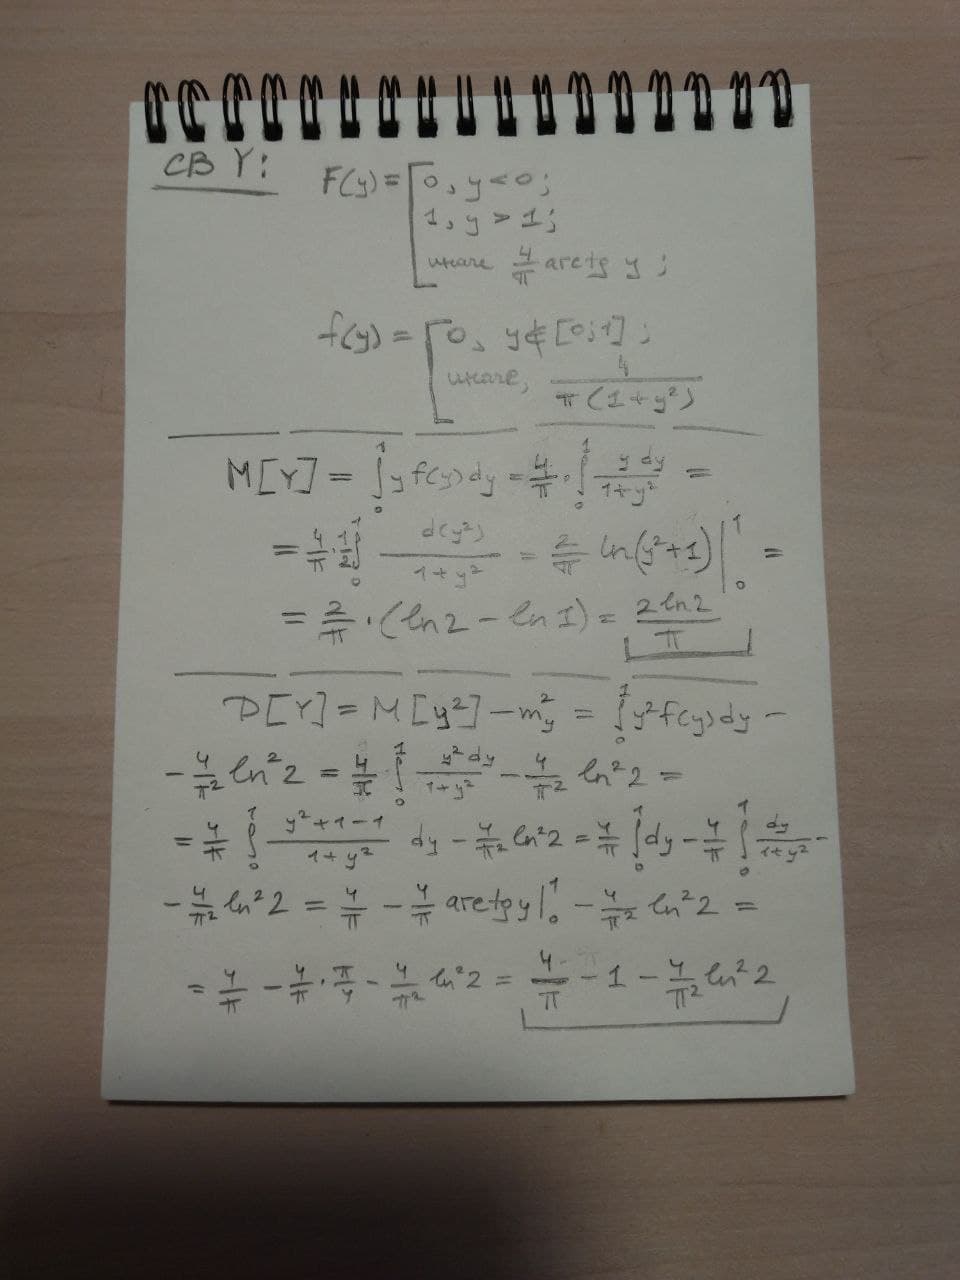 СВ Y:
F(y) = [0, y < 0;
1, y > 1;
иначе 4/π arctg y;
f(y) = [0, y ∉ [0;1];
иначе, 4/(π(1+y²))
M[Y] = ∫₀¹ y f(y) dy = 4/π · ∫₀¹ y dy/(1+y²) =
= 4/π · 1/2 ∫₀¹ d(y²)/(1+y²) = 2/π ln(y²+1)|₀¹ =
= 2/π · (ln2 - ln1) = 2ln2/π
D[Y] = M[y²] - m²y = ∫₀¹ y² f(y) dy -
- 4/π² ln²2 = 4/π ∫₀¹ y² dy/(1+y²) - 4/π² ln²2 =
= 4/π ∫₀¹ (y²+1-1)/(1+y²) dy - 4/π² ln²2 = 4/π ∫₀¹ dy - 4/π ∫₀¹ dy/(1+y²) -
- 4/π² ln²2 = 4/π - 4/π arctg y|₀¹ - 4/π² ln²2 =
= 4/π - 4/π · π/4 - 4/π² ln²2 = 4/π - 1 - 4/π² ln²2